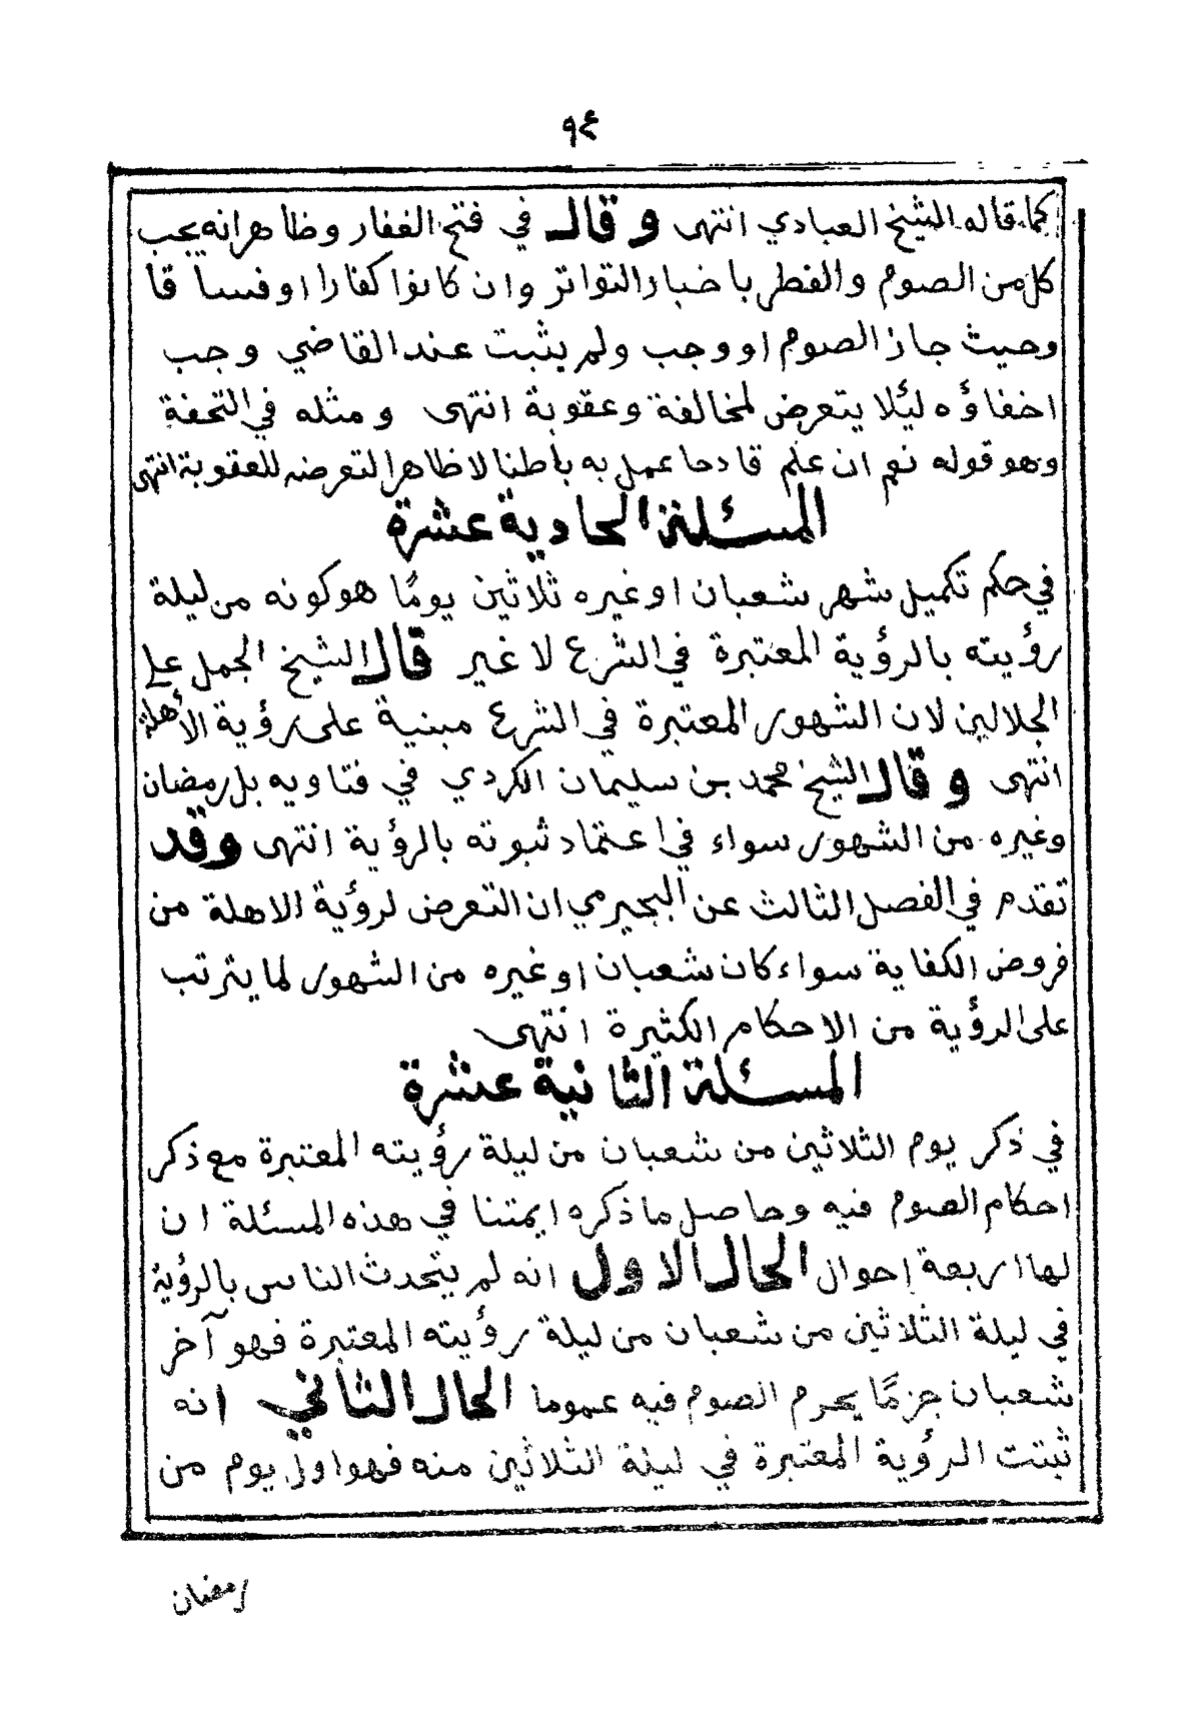 ٩٤
كما قاله الشيخ العبادي انتهى وقال في فتح الغفار وظاهرانه يجب
كل من الصوم والفطر باخبار التواتر وان كانوا كفارا او فساقا
وحيث جاز الصوم او وجب ولم يثبت عند القاضي وجب
اخفاؤه ليئلا يتعرض لمخالفة وعقوبة انتهى ومثله في التحفة
وهو قوله نعم ان علم قادحا عمل به باطنا لا ظاهرا لتعرضه للعقوبة انتهى
المسئلة الحادية عشرة
في حكم تكميل شهر شعبان او غيره ثلاثين يومًا هو كونه من ليلة
رؤيته بالرؤية المعتبرة في الشرع لا غير قال الشيخ الجمل على
الجلالين لان الشهور المعتبرة في الشرع مبنية على رؤية الأهلة
انتهى وقال الشيخ محمد بن سليمان الكردي في فتاويه بل رمضان
وغيره من الشهور سواء في اعتماد ثبوته بالرؤية انتهى وقد
تقدم في الفصل الثالث عن البجيرمي ان التعرض لرؤية الاهلة من
فروض الكفاية سواء كان شعبان او غيره من الشهور لما يترتب
على الرؤية من الاحكام الكثيرة انتهى
المسئلة الثانية عشرة
في ذكر يوم الثلاثين من شعبان من ليلة رؤيته المعتبرة مع ذكر
احكام الصوم فيه وحاصل ما ذكره ايمتنا في هذه المسئلة ان
لها اربعة احوال الحال الاول انه لم يتحدث الناس بالرؤية
في ليلة الثلاثين من شعبان من ليلة رؤيته المعتبرة فهو آخر
شعبان جزمًا يحرم الصوم فيه عموما الحال الثاني انه
ثبتت الرؤية المعتبرة في ليلة الثلاثين منه فهو اول يوم من
رمضان